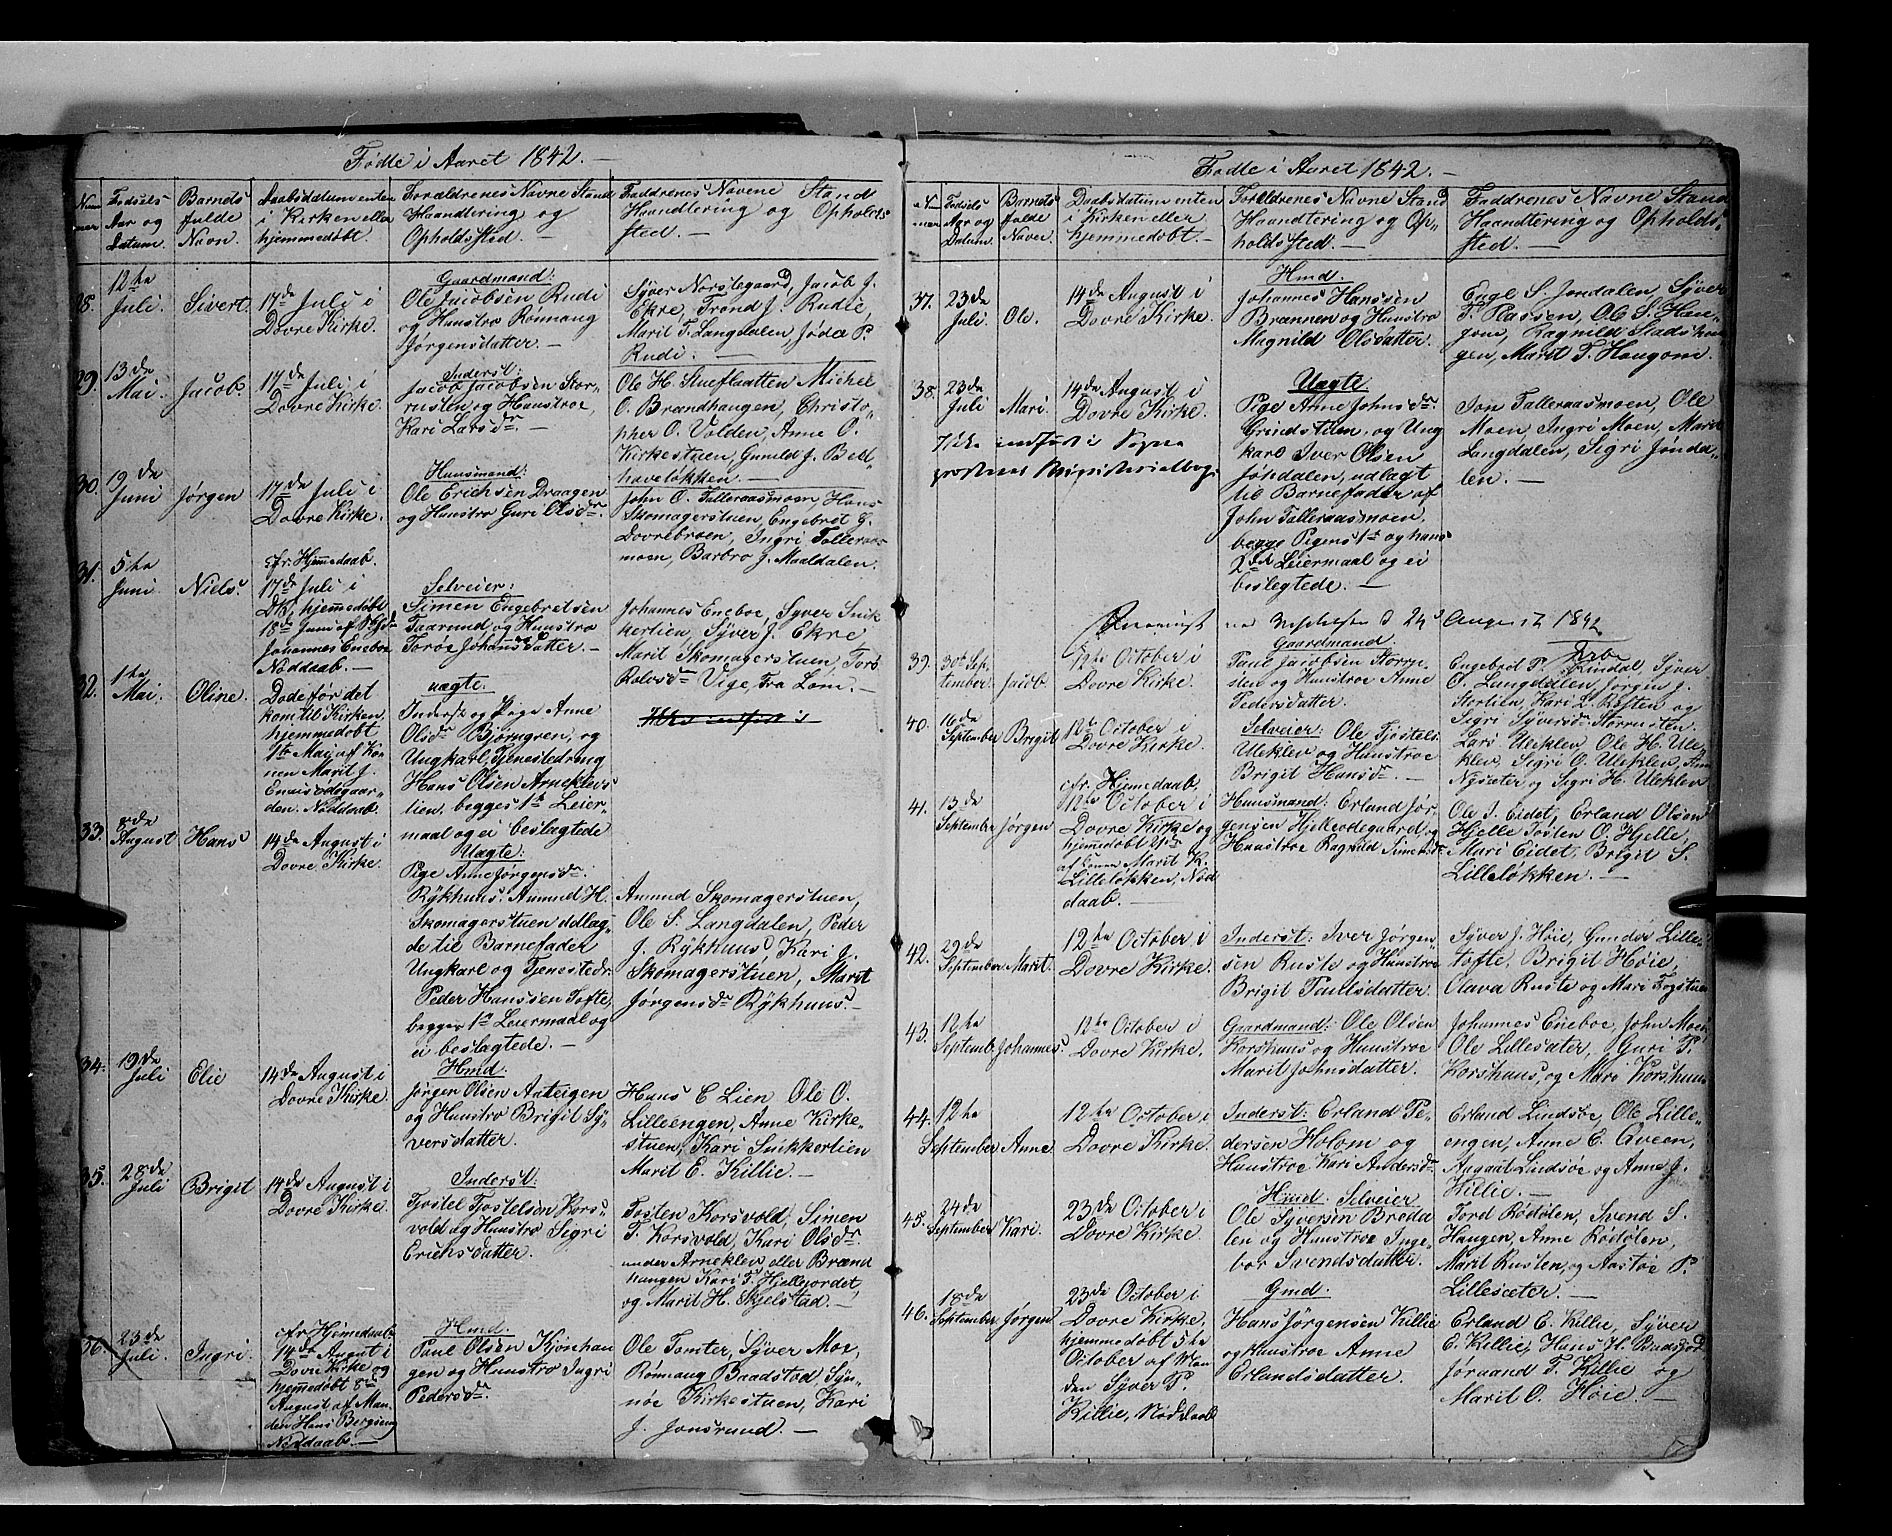 Fødte i Aaret 1842. —
Fødsels Aar og Datum.
Barnets fulde Navn.
Daabsdatum enten i Kirken eller hjemmedøbt.
Forældrenes Navne Stand Haandtering og Opholdssted. —
Faddrenes Navene Stand Haandtering og Opholdssted. —
12te Juli.
Sivert.
17de Juli i
Dovre Kirke.
Gaardmand:
Ole Jacobsen Rudi
og Hunstro Rönnaug
Jørgensdatter. —
Syver Norstegaard, Jacob J.
Ekre, Trond J. Rudie,
Marit T. Langdalen,
Rudi. —
29.
13de
Mai.
Jacob.
17de Juli i
Dovre Kirke.
Inderst:
Jacob Jacobsen Stor-
rusten og Hunstroe,
Kari Larsdr. —
Ole H. Stueflaatten Michel
O. Brændhaugen, Christo-
pher O. Volden, Anne O.
Kirkestuen, Gunild J.
30.
19de
Juni
Jørgen
17de Juli i
Dovre Kirke.
Huusmand:
Ole Erichsen Draagen
og Hunstro Guri Olsdr.
John O. Talleraasmoen, Hans
Skomagerstuen, Engebret G.
Dovrebroen, Ingri Talleraas-
moen, Barbro J. Maaldalen.
31.
5te
Juni
Niels.
cfr. Hjemmedaab.
17de Juli i
DK. hjemmedøbt
18de Juni af
Johannes Eneboe
Nøddaab. —
Selveier:
Simen Engebretsen
Taarund og Hunstro
Torøe Johansdatter. —
Johannes Eneboe, Syver Snik-
kerlien, Syver J. Ekre
Marit Skomagerstuen, Torø
Rolvsdr Vige, Fra Lom. —
32.
1te
Mai.
Oline.
Døde før det
kom til Kirken
hjemmedøbt
1te Mai af Ko-
nen Marit J.
den. Nøddaab.
uægte:
Inderst og Pige Anne
Olsdr Bjørngren, og
Ungkarl, Tjenestedreng
Hans Olsen Arneklevs-
lien, begges 1te Leier-
maal og ei beslægtede
33.
8de
August
Hans
14de August i
Dovre Kirke.
Uægte:
Pige Anne Jørgensdr.
Rykhuus. Amund H.
Skomagerstuen udlag-
de til Barnefader
Ungkarl og Tjenestedr.
Peder Hanssen Tofte,
begges 1te Leiermaal og
ei beslægtede. —
Amund Skomagerstuen,
Ole S. Langdalen, Peder
J. Rykhuus, Kari J.
Skomagerstuen, Marit
Jørgensdr Rykhuus. —
34.
19de
Juli
Elie
14de August i
Dovre Kirke.
Hmd:
Jørgen Olsen Aateigen
og Hunstro Brigit Sy-
versdatter.
Hans E Lien Ole O.
Lilleengen, Anne Kirke-
stuen, Kari Snikkerlien
Marit E. Killie. —
35.
28de
Juli
Brigit
14de August i
Dovre Kirke.
Inderst:
Tjostel Tjostelsen Kors-
vold og Hunstro Sigri
Erichsdatter.
Tosten Korsvold, Simen
T. Korsvold, Kari Olsdr
under Arneklev eller Brænd
haugen Kari T. Hiellejordet,
og Marit H. Skjelstad. —
23de
Juli.
Ingri.
cfr. Hjemedaab
14de August i
Dovre Kirke og
hjemmedøbt 8de
August af Man-
den Hans Bergseng
Nøddaab. —
Hmd:
Paul Olsen Kjønhau
gen og Hunstro Ingri
Pedersdr
Ole Tomter, Syver Moe,
Rønnaug Baadstad Syn-
nøe Kirkestuen, Kari
J. Jonsrund. —
Fødte i Aaret 1842. —
Fødsels Aar og Datum.
Barnets fulde Navn.
Daabsdatum enten i Kirken eller hjemmedøbt. —
Forældrenes Navne Stand Haandtering og Opholdssted. —
Faddrenes Navne Stand Haandtering og Opholdssted. —
37.
23de
Juli.
Ole.
14de August i
Dovre Kirke.
Hmd.
Johannes Hanssen
Brænnen og Hunstro
Magnild Olsdatter.
Enge S. Jøndalen, Syver
T. Plassen, Ole S. Hau-
gom, Ragnild Stadshou
gen, Marit T. Haugom.
38.
23de
Juli
Mari
14de August i
Dovre Kirke.
Uægte
Pige Anne Johnsdr.
Grindstuen, og Ung
karl Iver Olsen
Jøndalen, udlagt
til Barnefader af
John Talleraasmoen.
begge Pigens 1te og hans
2det Leiermaal og ei
beslegtede. —
Jon Talleraasmoen, Ole
Moen, Ingri Moen, Marit
Langdalen, Sigri Jønda-
len. —
Ikke indført i Sogne
præstens Ministerialbog.
39.
30te Sep-
tember.
Jacob
12te October i
Dovre Kirke.
Gaardmand
Paul Jacobsen Storru-
sten og Hunstroe Anne
Pedersdatter.
Engebret P. Rindal, Syver
O. Langdalen, Jørgen J.
Storlien, Kari L. Røften og
Sigri Syversdr Storrusten.
40.
16de
September
Brigit
12te October i
Dovre Kirke.
Selveier: Ole Tjostels-
Uleklev og Hunstroe
Brigit Hansdr. —
Lars Uleklev, Ole H. Ule-
klev, Sigri O. Uleklev,
Nysæter og Sigri H. Uleklev
41.
13de
September
Jørgen
cfr. Hjemedaab.
12te October i
Dovre Kirke og
hjemedøbt
af konen Marit K.
Lilleløkken, Nød
daab. —
Huusmand: Erland Jør-
gensen Hjelleødegaard, og
Hunstroe Ragnild Simensdr
Ole J. Eidet, Erland Olsen
Hjelle Tosten O. Hjelle,
Mari Eidet, Brigit S.
Lilleløkken. —
42.
29de
September
Marit.
12te October i
Dovre Kirke.
Inderst: Iver Jørgen-
sen Ruste og Hunstroe
Brigit Paulsdatter.
Syver J. Høie, Gunder Lille-
tofte, Brigit Høie,
Olava Ruste og Mari Fogstuen
43.
12te
Septemb.
Johannes.
12te October i
Dovre Kirke.
Gaardmand: Ole Olsen
Korshuus og Hunstroe
Marit Johnsdatter.
Johannes Eneboe, John Moen
Ole Lillesæter, Guri P.
Korshuus, og Mari Korshuus
44.
12te
September
Anne
12te October i
Dovre Kirke.
Inderst: Erland Pe-
dersen Holom og
Hunstroe Kari Andersdr
Erland Lindsøe, Ole Lille-
engen, Anne E. Qveen,
Lindsøe og Anne J.
Killie. —
45.
24de
September
Kari.
23de October i
Dovre Kirke.
Hmd. Selveier
Ole Syversen Breda
len og Hunstroe Inge-
bor Svendsdatter.
Tord Rødølen, Svend S.
Haugen, Anne Rødølen,
Marit Rusten, og Aastøe P.
Lillesæter. —
46.
18de
September
Jørgen
23de October i
Dovre Kirke,
hjemmedøbt 5te
October af Man
den Syver P.
Killie, Nøddaab
Gmd.
Hans Jørgensen Killie
og Hunstroe Anne
Erlandsdatter.
Erland E. Killie, Syver
E. Killie, Hans H. Budsjord
Jøraand T. Killie og
Marit O. Høie. —